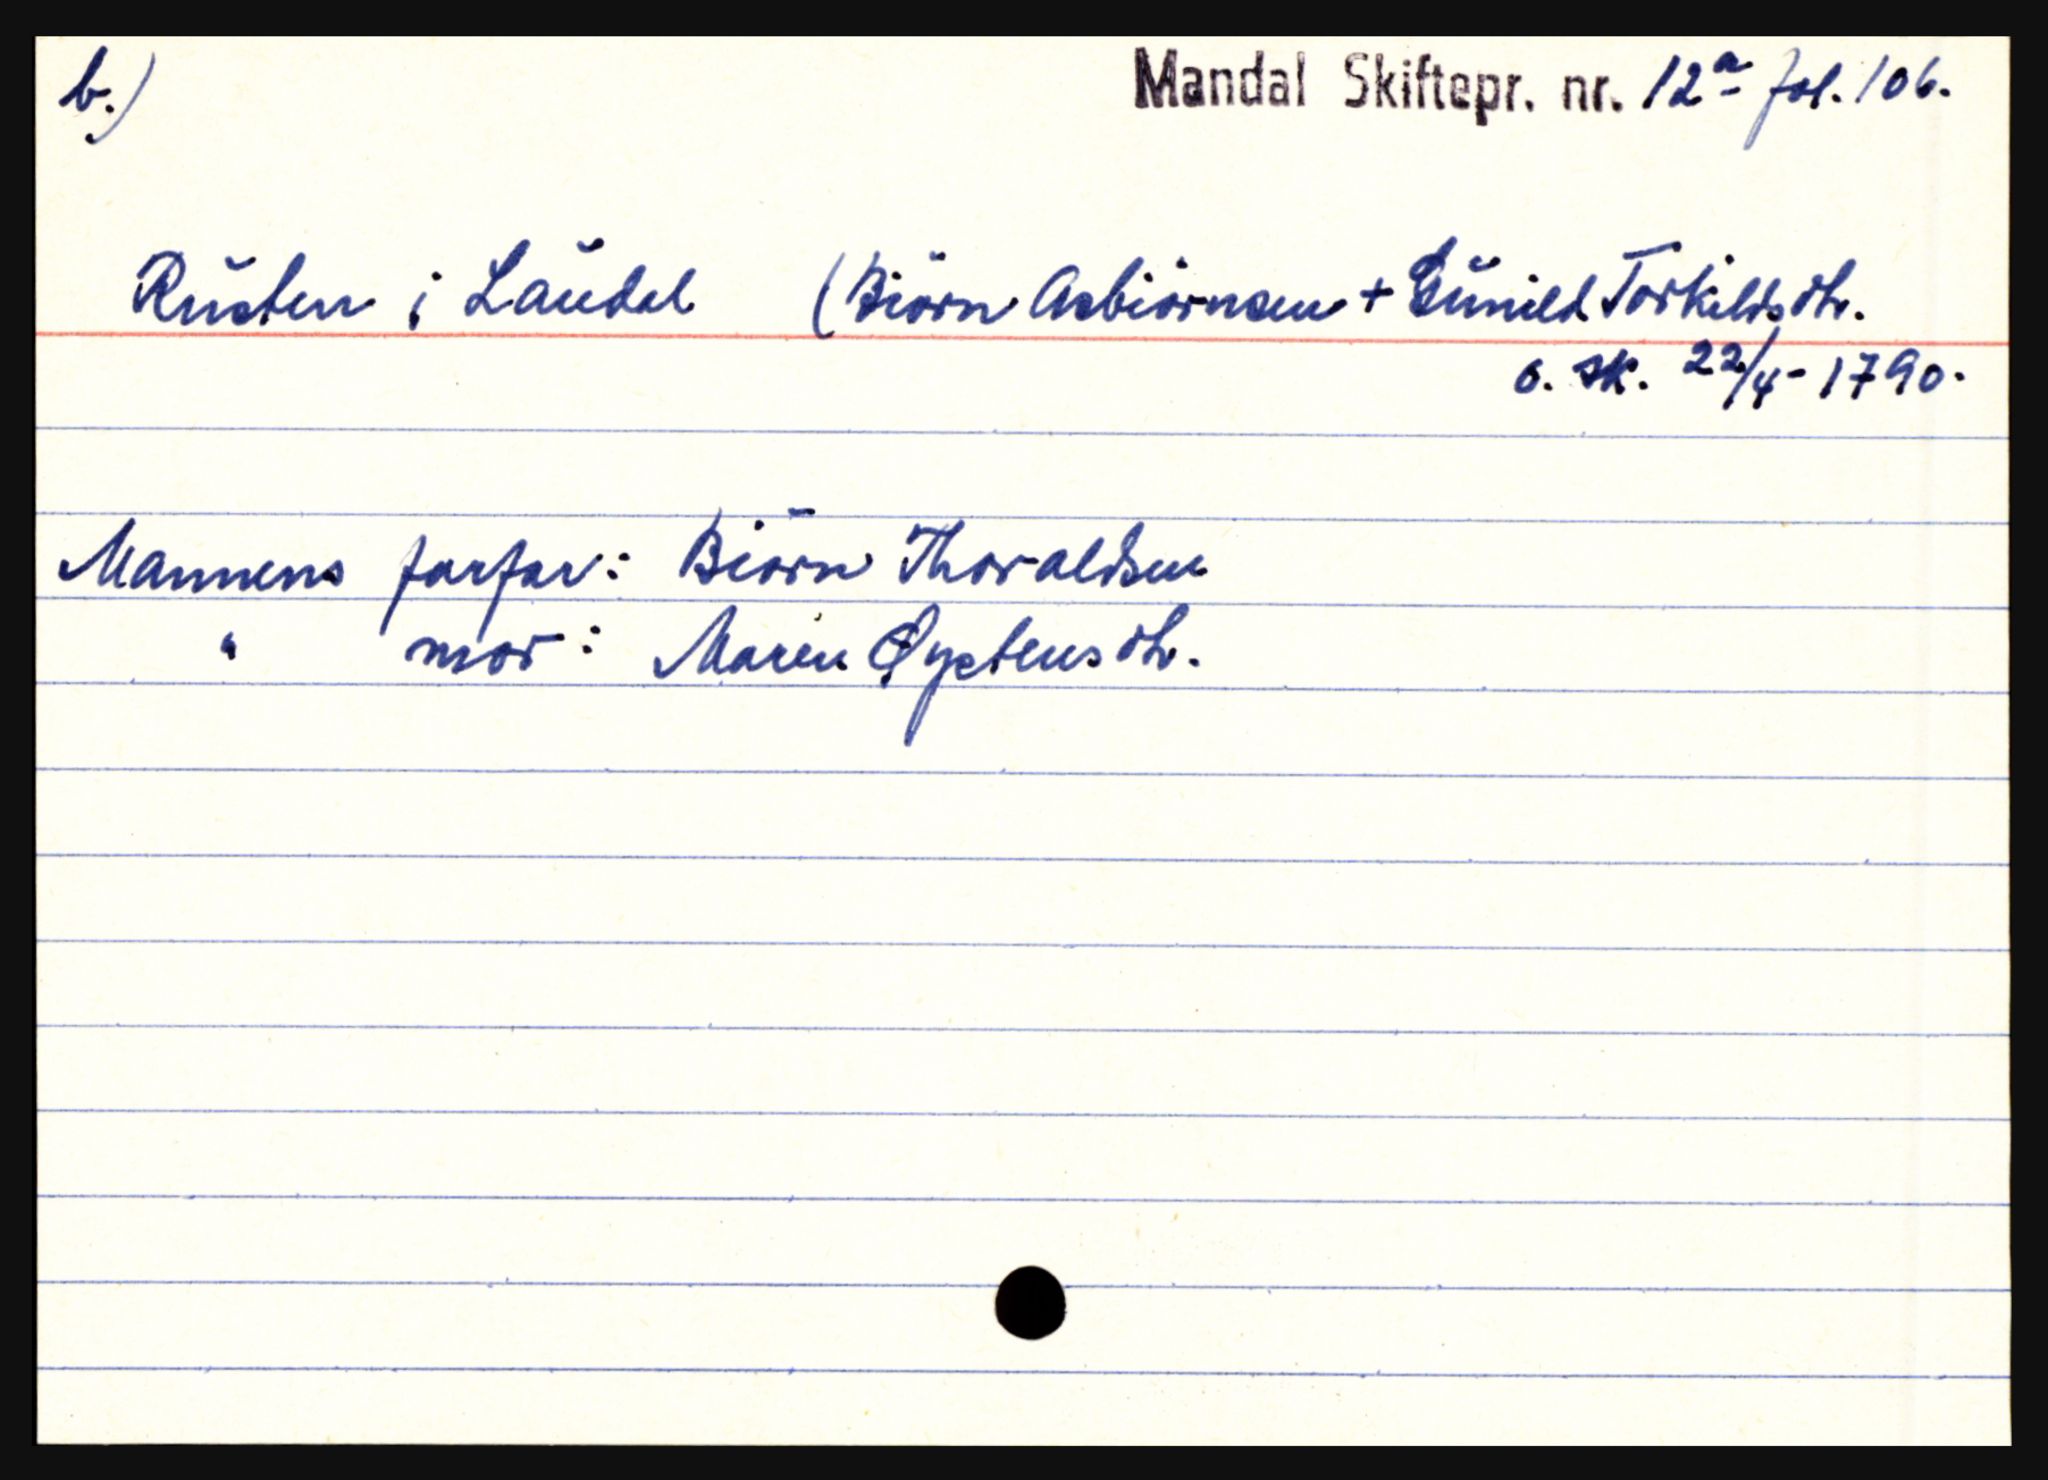 b.)
Mandal Skiftepr. nr. 12a fol. 106.
Rusten i Laudal (Biørn Asbiørnsen + Gunild Torkildsdtr.
o. sk. 22/4-1790.
Mannens farfar: Biørn Thoraldsen
" mor: Maren Øystensdtr.